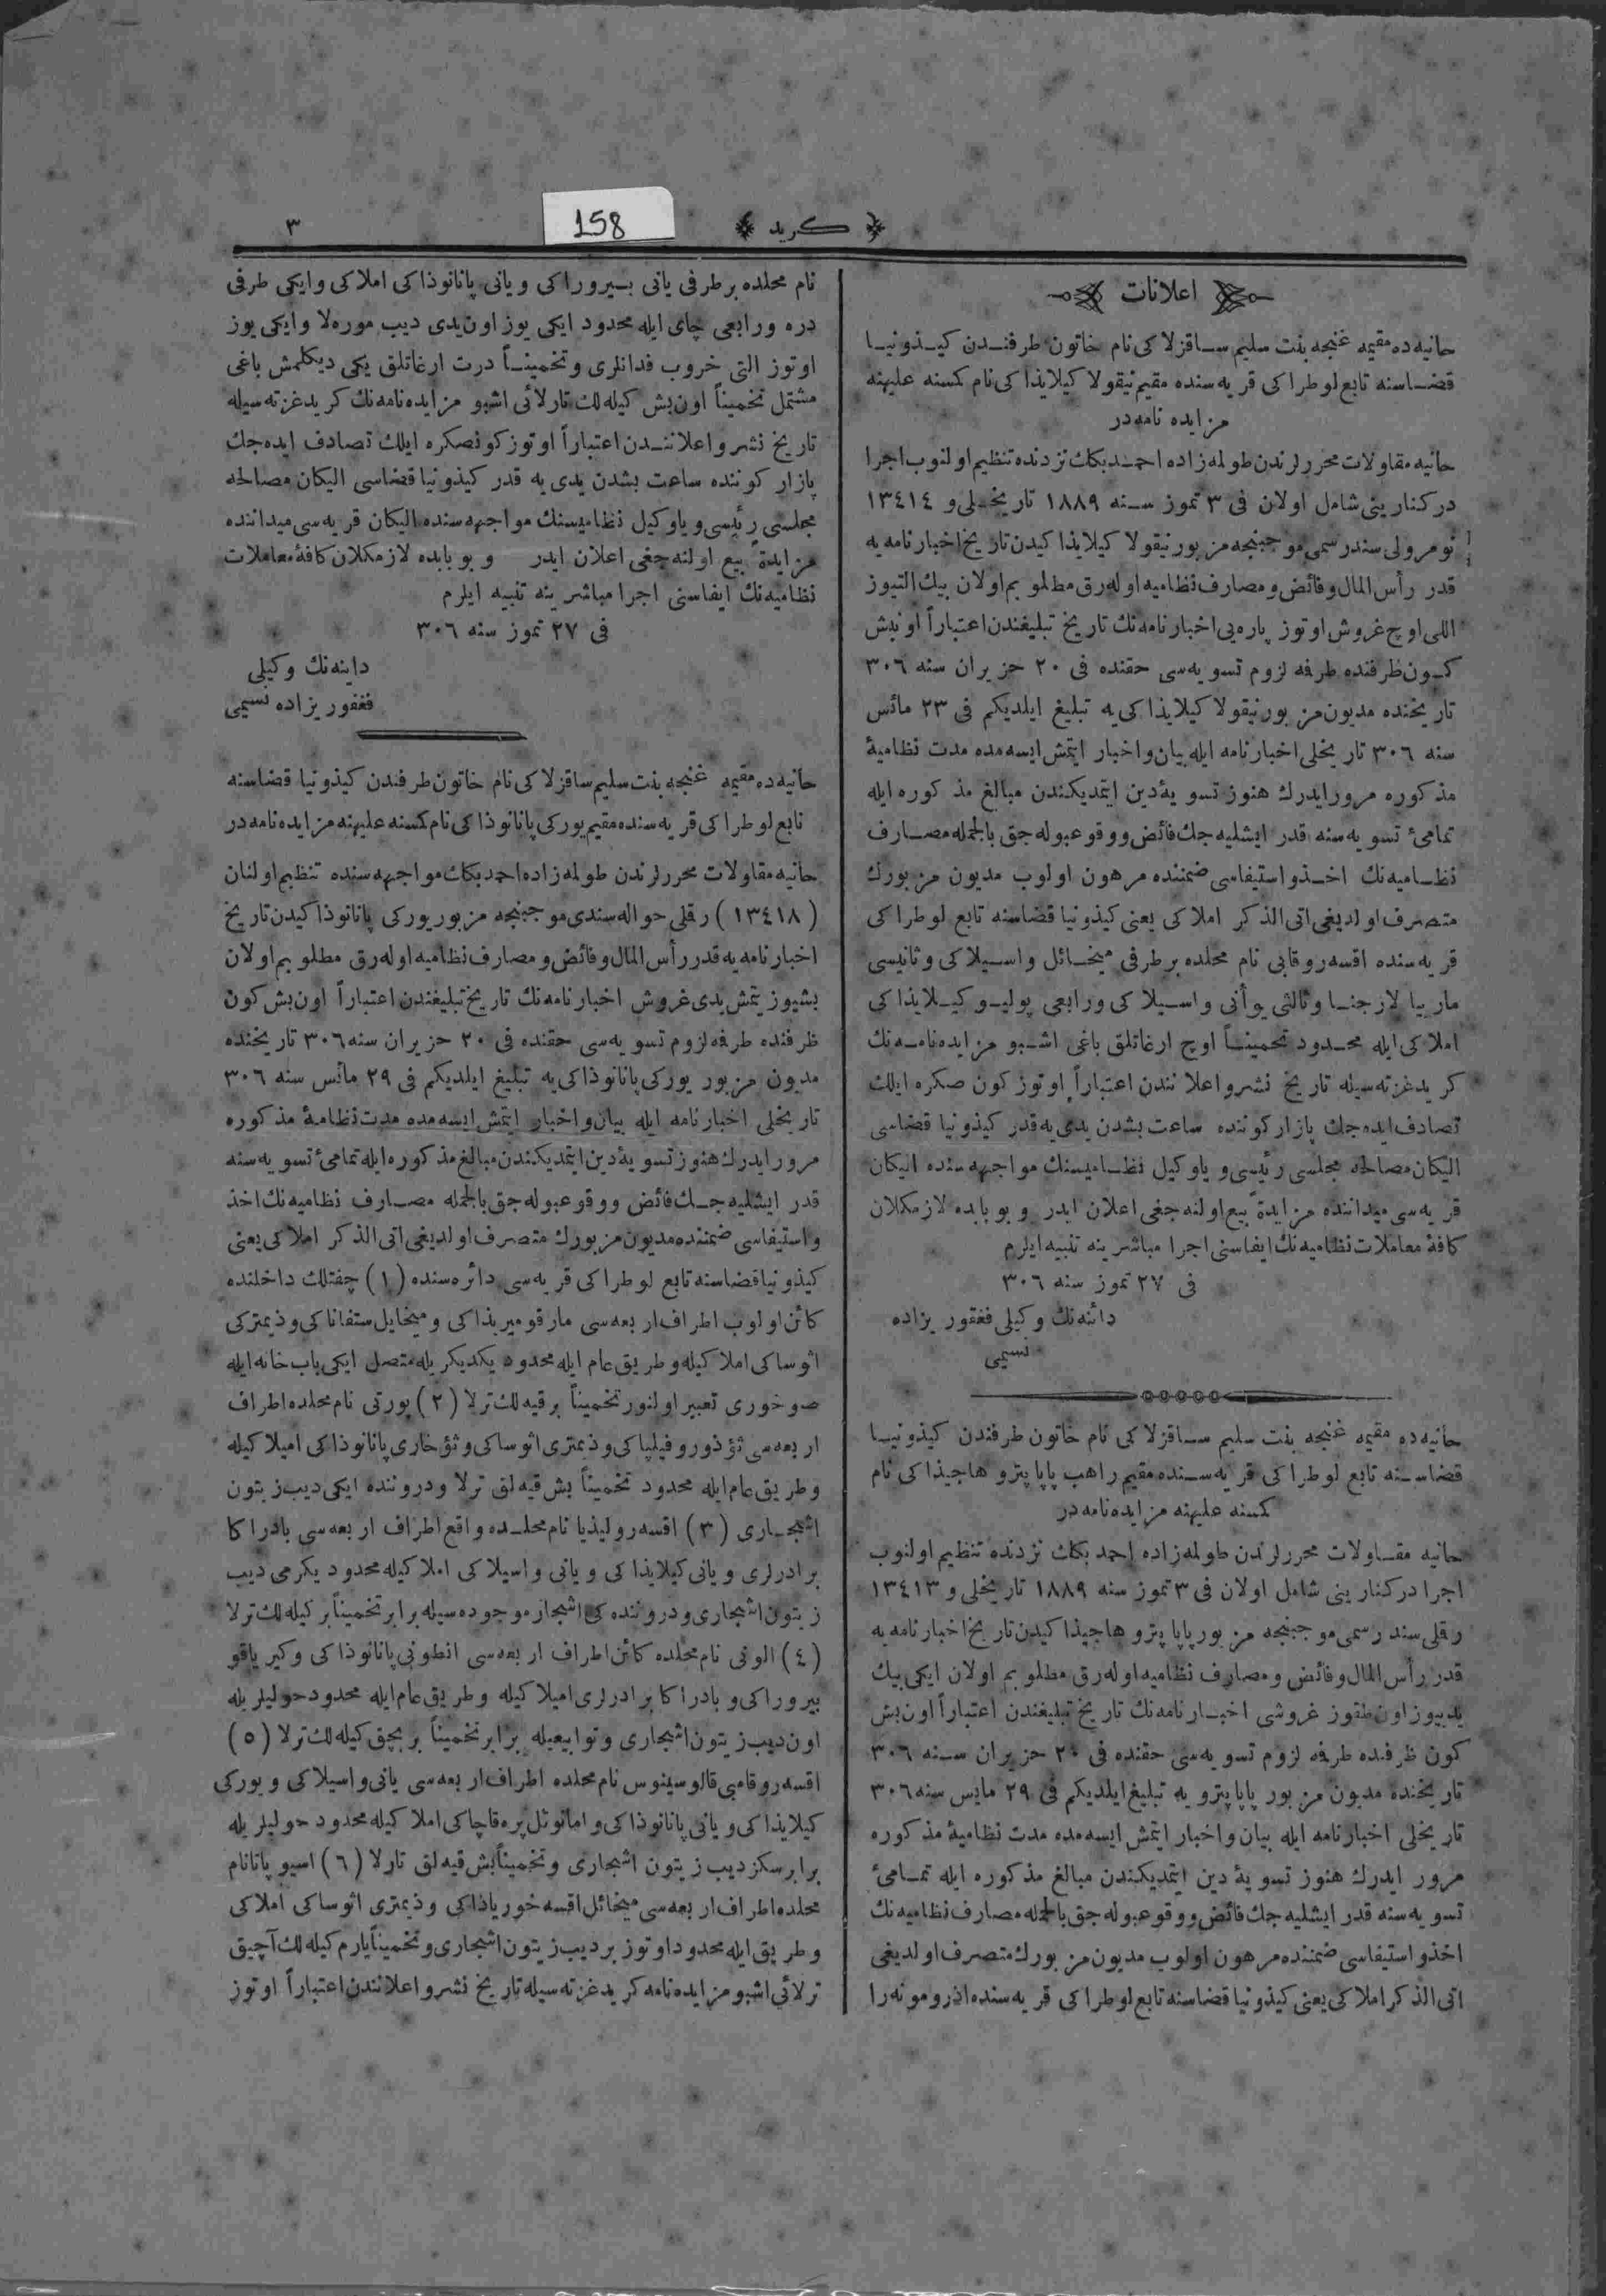 ﴿ كريد ﴾
158
٣
اعلانات
حانيه‌ده مقيمه غنجه بنت سليم ساقزلاكى نام خاتون طرفندن كيذونيا
قضاسنه تابع لوطراكى قريه‌سنده مقيم نيقولا كيلايذاكى نام كمسنه عليهنه
مزايده نامه‌در
حانيه مقاولات محررلرندن طولمه‌زاده احمد بكك نزدنده تنظيم اولنوب اجرا
دركنارينى شامل اولان فى ٣ تموز سنه ١٨٨٩ تاريخلى و ١٣٤١٤
نومرولى سند رسمى موجبنجه مزبور نيقولا كيلايذاكيدن تاريخ اخبارنامه‌يه
قدر رأس المال وفائض و مصارف نظاميه اوله‌رق مطلوبم اولان بيك التيوز
اللى اوچ غروش اوتوز پاره‌يى اخبارنامه‌نك تاريخ تبليغندن اعتباراً اونبش
كون ظرفنده طرفمه لزوم تسويه‌سى حقنده فى ٢٠ حزيران سنه ٣٠٦
تاريخنده مديون مزبور نيقولا كيلايذاكى‌يه تبليغ ايلديكم فى ٢٣ مائس
سنه ٣٠٦ تاريخلى اخبارنامه ايله بيان واخبار ايتمش ايسه‌مده مدت نظاميۀ
مذكوره مرور ايدرك هنوز تسويۀ دين ايتمديكندن مبالغ مذكوره ايله
تمامئ تسويه‌سنه قدر ايشليه‌جك فائض ووقوعبوله‌جق بالجمله مصارف
نظاميه‌نك اخذ واستيفاسى ضمننده مرهون اولوب مديون مزبورك
متصرف اولديغى اتى الذكر املاكى يعنى كيذونيا قضاسنه تابع لوطراكى
قريه‌سنده اقسه‌روقابى نام محلده بر طرفى ميخائل واسيلاكى وثانيسى
ماريبا لازجنا وثالثى يوأنى واسيلاكى ورابعى پوليو كيلايذاكى
املاكى ايله محدود تخميناً اوچ ارغاتلق باغى اشبو مزايده‌نامه‌نك
كريد غزته‌سيله تاريخ نشر واعلانندن اعتباراً اوتوز كون صكره ايلك
تصادف ايده‌جك پازار كوننده ساعت بشدن يدى‌يه قدر كيذونيا قضاسى
اليكان مصالحه مجلسى رئيسى و ياوكيل نظاميسنك مواجهه‌سنده اليكان
قريه‌سى ميداننده مزايدةً بيع اولنه‌جغى اعلان ايدر و بو بابده لازمكلان
كافۀ معاملات نظاميه‌نك ايفاسنى اجرا مباشرينه تنبيه ايلرم
فى ٢٧ تموز سنه ٣٠٦
دائنه‌نك وكيلى فغفوريزاده
نسيمى
حانيه‌ده مقيمه غنجه بنت سليم ساقزلاكى نام خاتون طرفندن كيذونيا
قضاسنه تابع لوطراكى قريه‌سنده مقيم راهب پاپا پترو هاجيذاكى نام
كمسنه عليهنه مزايده‌نامه‌در
حانيه مقاولات محررلرندن طولمه‌زاده احمد بكك نزدنده تنظيم اولنوب
اجرا دركنارينى شامل اولان فى ٣ تموز سنه ١٨٨٩ تاريخلى و ١٣٤١٣
رقلى سند رسمى موجبنجه مزبور پاپا پترو هاجيذاكيدن تاريخ اخبارنامه‌يه
قدر رأس المال وفائض و مصارف نظاميه اوله‌رق مطلوبم اولان ايكى بيك
يديوز اون طقوز غروشى اخبارنامه‌نك تاريخ تبليغندن اعتباراً اون بش
كون ظرفنده طرفمه لزوم تسويه‌سى حقنده فى ٢٠ حزيران سنه ٣٠٦
تاريخنده مديون مزبور پاپا پترو يه تبليغ ايلديكم فى ٢٩ مايس سنه ٣٠٦
تاريخلى اخبارنامه ايله بيان واخبار ايتمش ايسه‌مده مدت نظاميۀ مذكوره
مرور ايدرك هنوز تسويۀ دين ايتمديكندن مبالغ مذكوره ايله تمامئ
تسويه‌سنه قدر ايشليه‌جك فائض ووقوعبوله‌جق بالجمله مصارف نظاميه‌نك
اخذ واستيفاسى ضمننده مرهون اولوب مديون مزبورك متصرف اولديغى
اتى الذكر املاكى يعنى كيذونيا قضاسنه تابع لوطراكى قريه‌سنده اذرومونه‌را
نام محلده بر طرفى يانى بسيروراكى و يانى پانانوذاكى املاكى وايكى طرفى
دره ورابعى چاى ايله محدود ايكى يوز اون يدى ديب موره‌لا وايكى يوز
اوتوز التى خروب فدانلرى وتخميناً درت ارغاتلق يكى ديكلمش باغى
مشتمل تخميناً اون بش كيله‌لك تارلائى اشبو مزايده‌نامه‌نك كريد غزته‌سيله
تاريخ نشر واعلانندن اعتباراً اوتوز كونصكره ايلك تصادف ايده‌جك
پازار كوننده ساعت بشدن يدى‌يه قدر كيذونيا قضاسى اليكان مصالحه
مجلسى رئيسى و ياوكيل نظاميسنك مواجهه‌سنده اليكان قريه‌سى ميداننده
مزايدةً بيع اولنه‌جغى اعلان ايدر و بو بابده لازمكلان كافۀ معاملات
نظاميه‌نك ايفاسنى اجرا مباشرينه تنبيه ايلرم
فى ٢٧ تموز سنه ٣٠٦
داينه‌نك وكيلى
فغفوريزاده نسيمى
حانيه‌ده مقيمه غنجه بنت سليم ساقزلاكى نام خاتون طرفندن كيذونيا قضاسنه
تابع لوطراكى قريه‌سنده مقيم يوركى پانانوذاكى نام كمسنه عليهنه مزايده نامه‌در
حانيه مقاولات محررلرندن طولمه‌زاده احمد بكك مواجهه‌سنده تنظيم اولنان
(١٣٤١٨) رقلى حواله سندى موجبنجه مزبور يوركى پانانوذاكيدن تاريخ
اخبارنامه‌يه قدر رأس المال وفائض و مصارف نظاميه اوله‌رق مطلوبم اولان
بشيوز يتمش يدى غروش اخبارنامه‌نك تاريخ تبليغندن اعتباراً اون بش كون
ظرفنده طرفمه لزوم تسويه‌سى حقنده فى ٢٠ حزيران سنه ٣٠٦ تاريخنده
مديون مزبور يوركى پانانوذاكى‌يه تبليغ ايلديكم فى ٢٩ مائس سنه ٣٠٦
تاريخلى اخبارنامه ايله بيان واخبار ايتمش ايسه‌مده مدت نظامۀ مذكوره
مرور ايدرك هنوز تسويۀ دين ايتمديكندن مبالغ مذكوره ايله تمامئ تسويه‌سنه
قدر ايشليه‌جك فائض ووقوعبوله‌جق بالجمله مصارف نظاميه‌نك اخذ
واستيفاسى ضمننده مديون مزبورك متصرف اولديغى اتى الذكر املاكى يعنى
كيذونيا قضاسنه تابع لوطراكى قريه‌سى دائره‌سنده (١) چفتلك داخلنده
كائن اولوب اطراف اربعه‌سى مارقو ميريذاكى و ميخايل ستفاناكى وذيمتركى
اثوساكى املاكيله وطريق عام ايله محدود يكديكريله متصل ايكى باب خانه ايله
صوخورى تعبير اولنور تخميناً برقيه‌لك ترلا (٢) پورتى نام محلده اطراف
اربعه‌سى ثؤذورو فيلپاكى وذيمترى اثوساكى وثؤخارى پانانوذاكى املاكيله
وطريق عام ايله محدود تخميناً بش قيه‌لق ترلا ودروننده ايكى ديب زيتون
اشجارى (٣) اقسه‌روليذيا نام محلده واقع اطراف اربعه‌سى بادراكا
برادرلرى و يانى كيلايذاكى و يانى واسيلاكى املاكيله محدود يكرمى ديب
زيتون اشجارى ودروننده‌كى اشجار موجوده‌سيله برابر تخميناً بر كيله‌لك ترلا
(٤) الونى نام محلده كائن اطراف اربعه‌سى انطونى پانانوذاكى وكيرياقو
بيروراكى و بادراكا برادرلرى املاكيله وطريق عام ايله محدود حوليلريله
اون ديب زيتون اشجارى وتوابيعيله برابر تخميناً بر بچق كيله‌لك ترلا (٥)
اقسه‌روقامبى قالوسينوس نام محلده اطراف اربعه‌سى يانى واسيلاكى و يوركى
كيلايذاكى و يانى پانانوذاكى و امانوئل پره‌قاچاكى املاكيله محدود حوليلريله
برابر سكز ديب زيتون اشجارى وتخميناً بش قيه‌لق تارلا (٦) اسيو پانا نام
محلده اطراف اربعه‌سى ميخائل اقسه‌خورياذاكى وذيمترى اثوساكى املاكى
وطريق ايله محدود اوتوز بر ديب زيتون اشجارى وتخميناً يارم كيله‌لك آچيق
ترلائى اشبو مزايده‌نامه كريد غزته‌سيله تاريخ نشر واعلانندن اعتباراً اوتوز